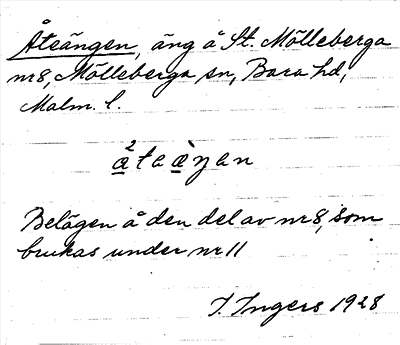 Åteängen, äng å St. Mölleberga
nr8, Mölleberga sn, Bara hd,
Malm. l.
Belägen å den del av nr 8, som
brukas under nr 11
I. Ingers 1928